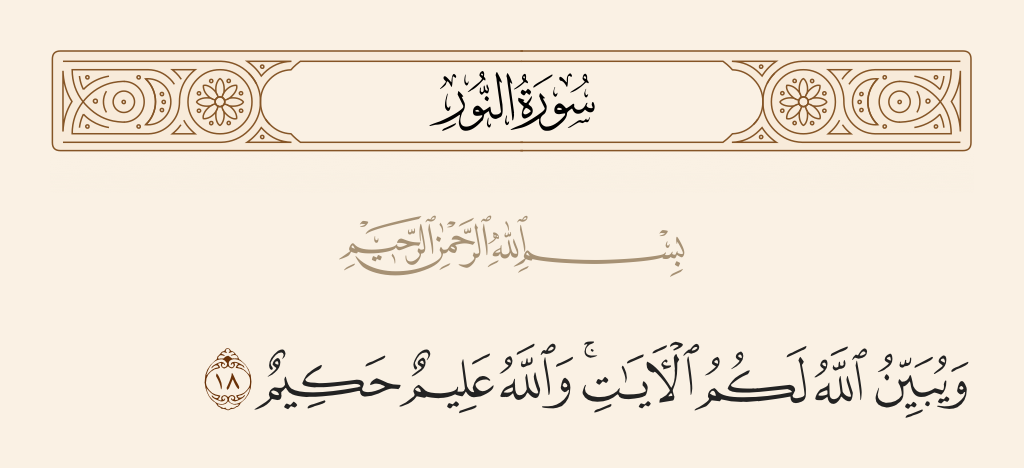 سُورَةُ النُّورِ
بِسْمِ ٱللَّهِ ٱلرَّحْمَٰنِ ٱلرَّحِيمِ
وَيُبَيِّنُ ٱللَّهُ لَكُمُ ٱلْـَٔايَـٰتِ ۚ وَٱللَّهُ عَلِيمٌ حَكِيمٌ ١٨